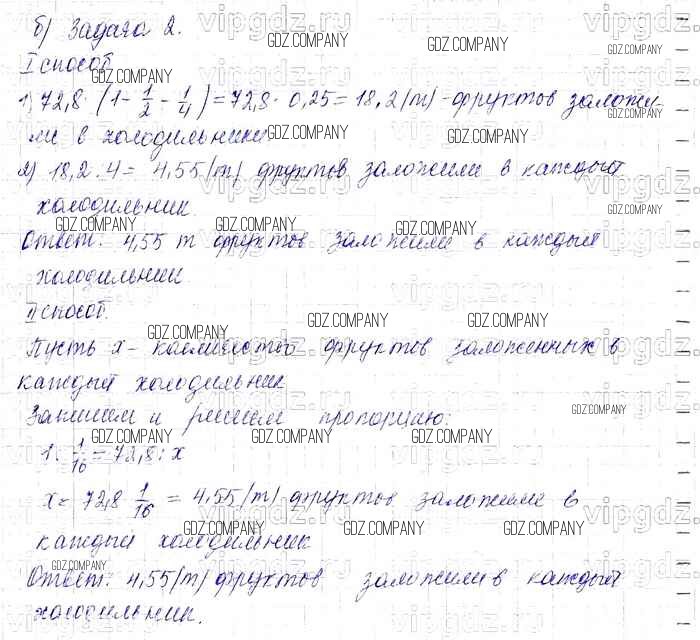 б) Задача 2.
I способ
1) 72,8 · (1 - 1/2 - 1/4) = 72,8 · 0,25 = 18,2 (т) - фруктов заложи-
ли в холодильники
2) 18,2 : 4 = 4,55 (т) фруктов заложили в каждый
холодильник.
Ответ: 4,55 т фруктов заложили в каждый
холодильник
II способ.
Пусть x - количество фруктов заложенных в
каждый холодильник
Запишем и решим пропорцию:
1 : 1/16 = 72,8 : x
x = 72,8 · 1/16 = 4,55 (т) - фруктов заложили в
каждый холодильник
Ответ: 4,55 (т) фруктов заложили в каждый
холодильник.
GDZ.COMPANY
vipgdz.ru